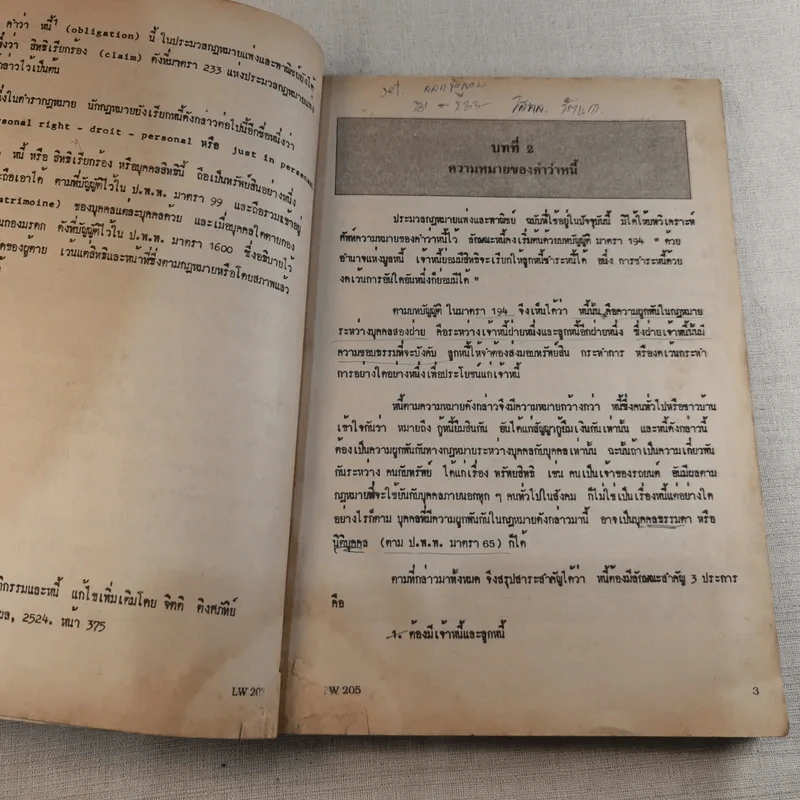 คำว่า หนี้¹ (obligation) นี้ ในประมวลกฎหมายแพ่งและพาณิชย์ยังใช้
ว่า สิทธิเรียกร้อง (claim) ดังที่มาตรา 233 แห่งประมวลกฎหมายแพ่ง
ล่าวไว้เป็นต้น
ในตำรากฎหมาย นักกฎหมายยังเรียกหนี้ดังกล่าวต่อไปนี้อีกชื่อหนึ่งว่า
rsonal right - droit - personal หรือ just in personam
หนี้ หรือ สิทธิเรียกร้อง หรือบุคคลสิทธินี้ ถือเป็นทรัพย์สินอย่างหนึ่ง
ะถือเอาได้ ตามที่บัญญัติไว้ใน ป.พ.พ. มาตรา 99 และถือรวมเข้าอยู่
atrimoine) ของบุคคลแต่ละบุคคลด้วย และเมื่อบุคคลใดตายกอง
นกองมรดก ดังที่บัญญัติไว้ใน ป.พ.พ. มาตรา 1600 ซึ่งอธิบายไว้
ดของผู้ตาย เว้นแต่สิทธิและหน้าที่ซึ่งตามกฎหมายหรือโดยสภาพแล้ว
ติกรรมและหนี้ แก้ไขเพิ่มเติมโดย จิตติ ติงศภัทิย์
2524. หน้า 375
LW 20
บทที่ 2
ความหมายของคำว่าหนี้
ประมวลกฎหมายแพ่งและพาณิชย์ ฉบับที่ใช้อยู่ในปัจจุบันนี้ มิได้ให้บทวิเคราะห์
ศัพท์ความหมายของคำว่าหนี้ไว้ ลักษณะหนี้คงเริ่มต้นด้วยบทบัญญัติ มาตรา 194 " ด้วย
อำนาจแห่งมูลหนี้ เจ้าหนี้ย่อมมีสิทธิจะเรียกให้ลูกหนี้ชำระหนี้ได้ อนึ่ง การชำระหนี้ด้วย
งดเว้นการอันใดอันหนึ่งก็ย่อมมีได้ "
ตามบทบัญญัติ ในมาตรา 194 จึงเห็นได้ว่า หนี้นั้น คือความผูกพันในกฎหมาย
ระหว่างบุคคลสองฝ่าย คือระหว่างเจ้าหนี้ฝ่ายหนึ่งและลูกหนี้อีกฝ่ายหนึ่ง ซึ่งฝ่ายเจ้าหนี้นั้นมี
ความชอบธรรมที่จะบังคับ ลูกหนี้ให้จำต้องส่งมอบทรัพย์สิน กระทำการ หรืองดเว้นกระทำ
การอย่างใดอย่างหนึ่งเพื่อประโยชน์แก่เจ้าหนี้
หนี้ตามความหมายดังกล่าวจึงมีความหมายกว้างกว่า หนี้ซึ่งคนทั่วไปหรือชาวบ้าน
เข้าใจกันว่า หมายถึง กู้หนี้ยืมสินกัน อันได้แก่สัญญากู้ยืมเงินกันเท่านั้น และหนี้ดังกล่าวนี้
ต้องเป็นความผูกพันกันทางกฎหมายระหว่างบุคคลกับบุคคลเท่านั้น ฉะนั้นถ้าเป็นความเกี่ยวพัน
กันระหว่าง คนกับทรัพย์ ได้แก่เรื่อง ทรัพยสิทธิ เช่น คนเป็นเจ้าของรถยนต์ อันมีผลตาม
กฎหมายที่จะใช้ยันกับบุคคลภายนอกทุก ๆ คนทั่วไปในสังคม ก็ไม่ใช่เป็นเรื่องหนี้แต่อย่างใด
อย่างไรก็ตาม บุคคลที่มีความผูกพันกันในกฎหมายดังกล่าวมานี้ อาจเป็นบุคคลธรรมดา หรือ
นิติบุคคล (ตาม ป.พ.พ. มาตรา 65) ก็ได้
ตามที่กล่าวมาทั้งหมด จึงสรุปสาระสำคัญได้ว่า หนี้ต้องมีลักษณะสำคัญ 3 ประการ
คือ
1. ต้องมีเจ้าหนี้และลูกหนี้
LW 205
3